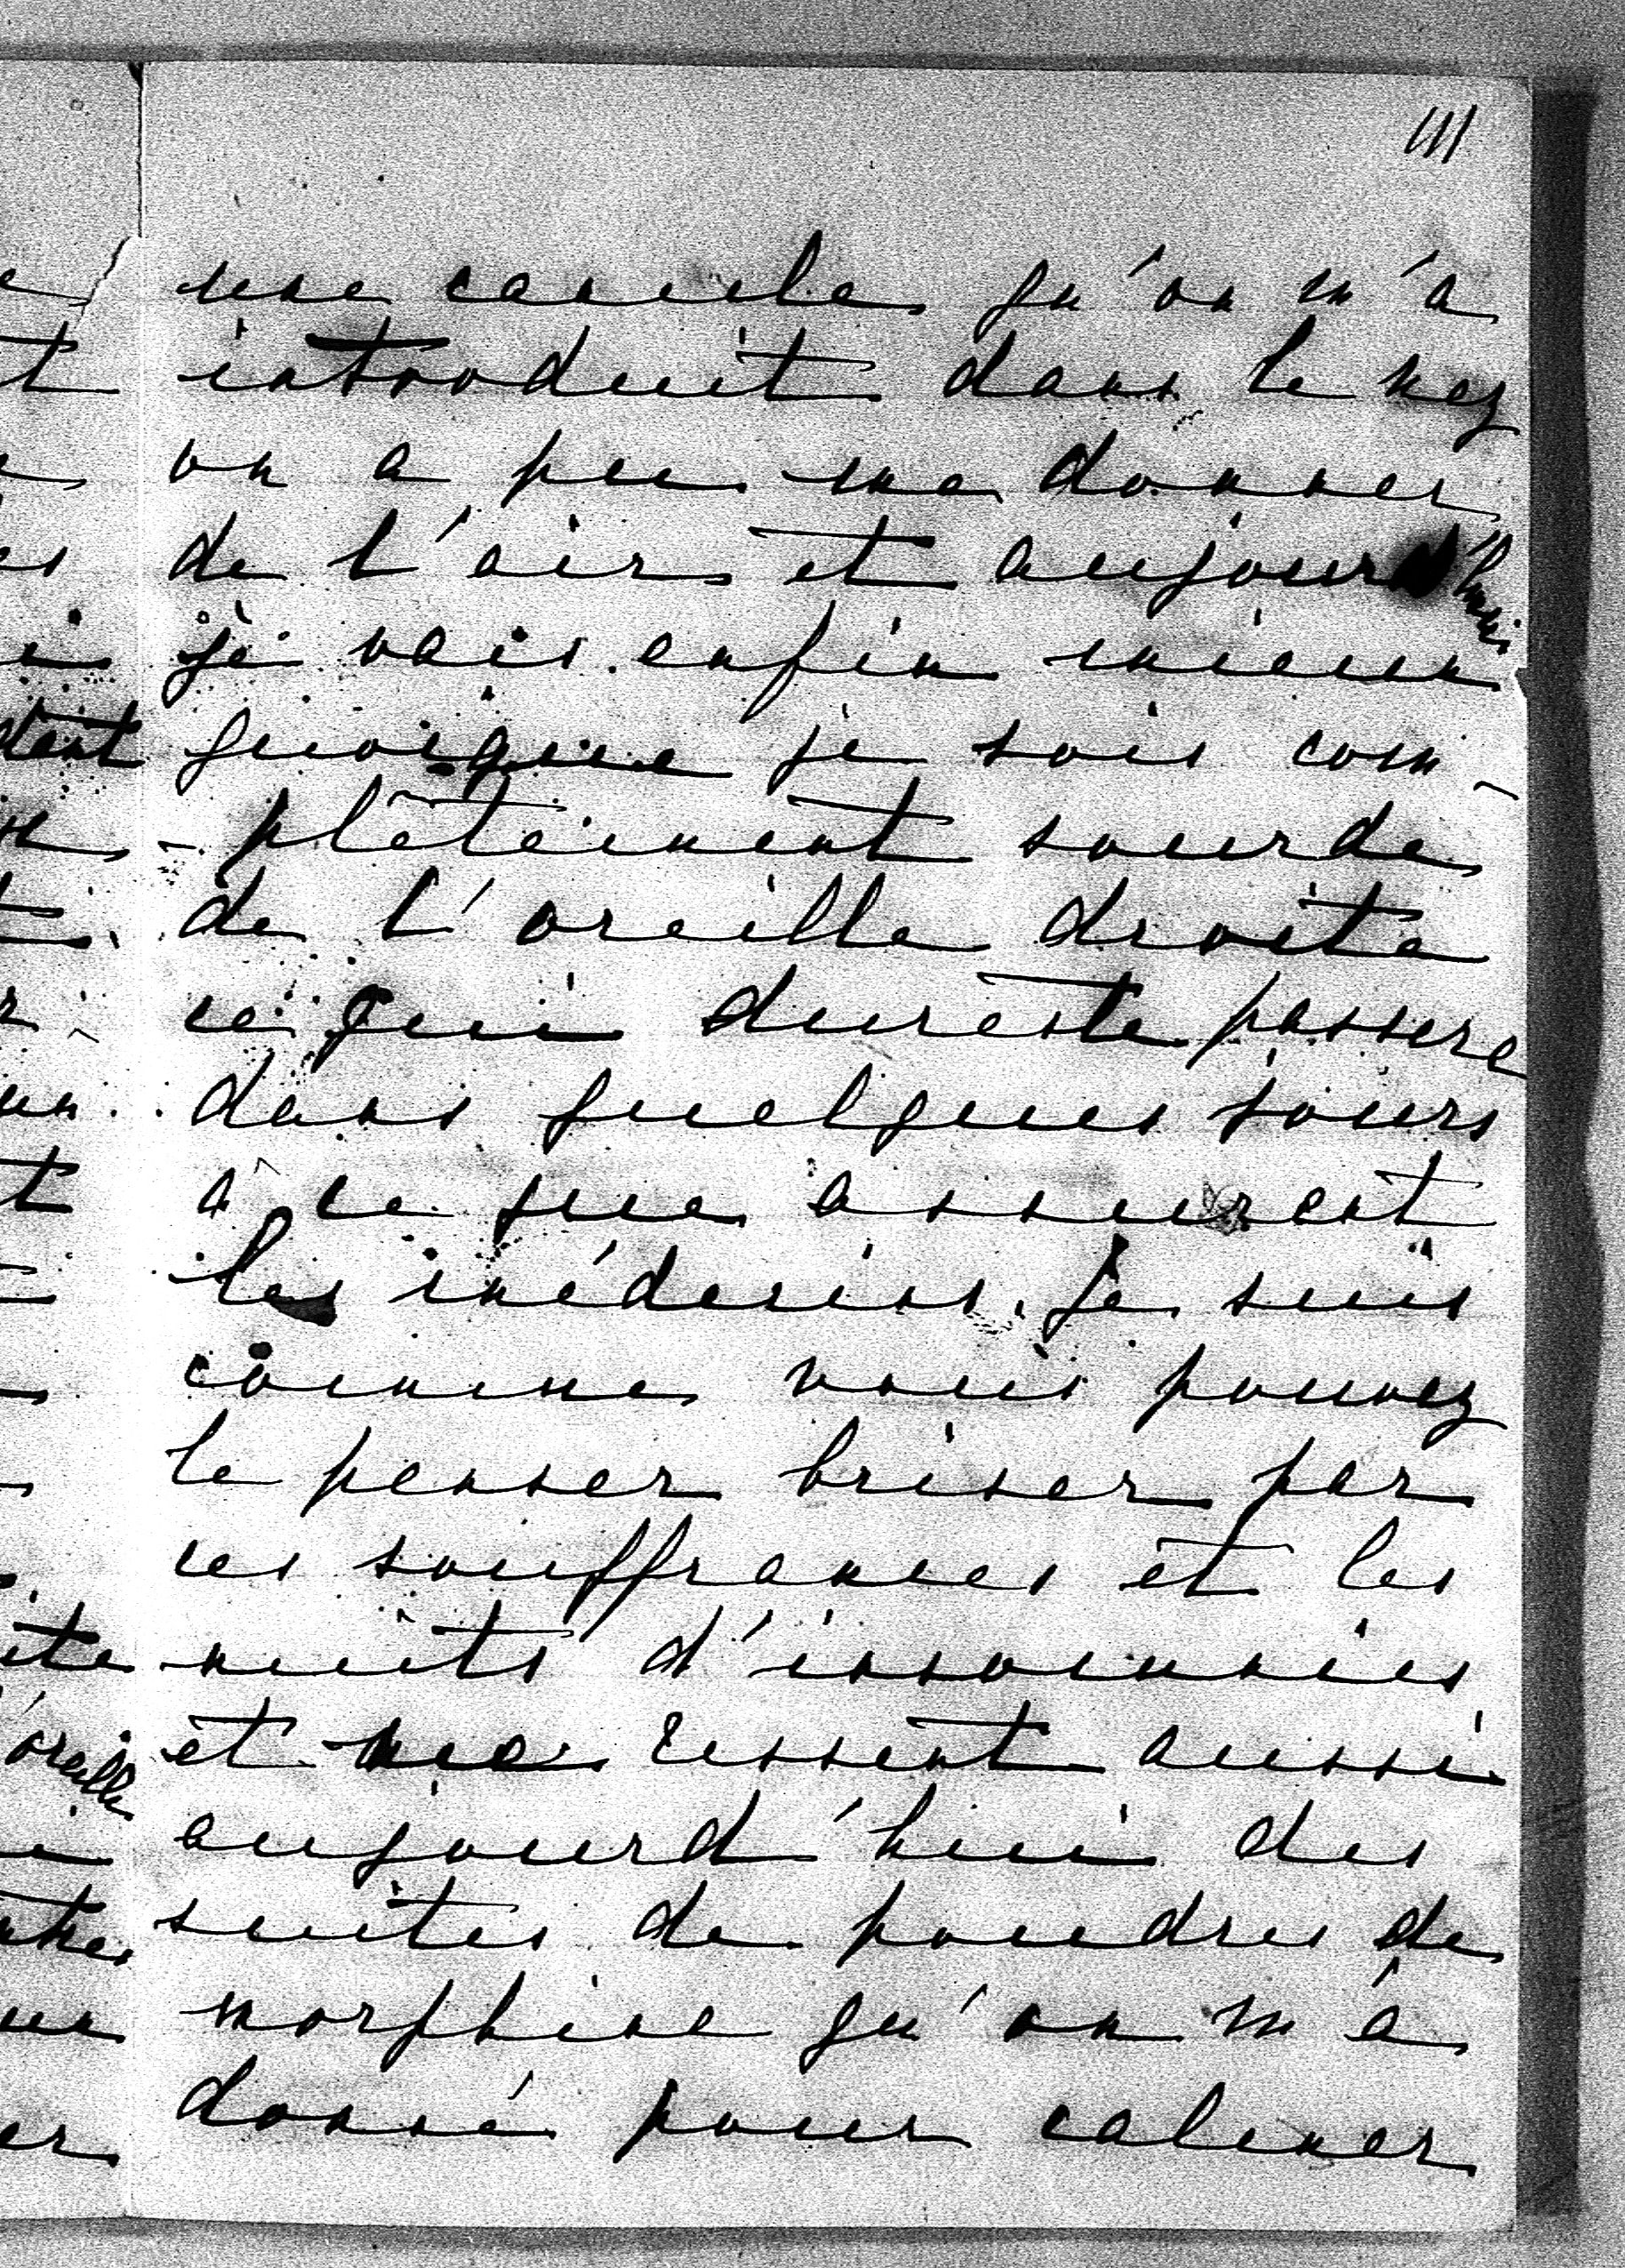 111
une canule qu'on m'a
introduit dans le nez
on a pu me donner
de l'air et aujourd'hui
je vais enfin mieux
quoique je sois com-
-plêtement sourde
de l'oreille droite
ce qui dureste passera
dans quelques jours
a ce que assurent
les médecins. Je suis
comme vous pouvez
le penser briser par
ces souffrances et les
nuits d'insomnies
et me ressent aussi
aujourd'hui des
suites de poudres de
morphine qu'on m'a
donné pour calmer